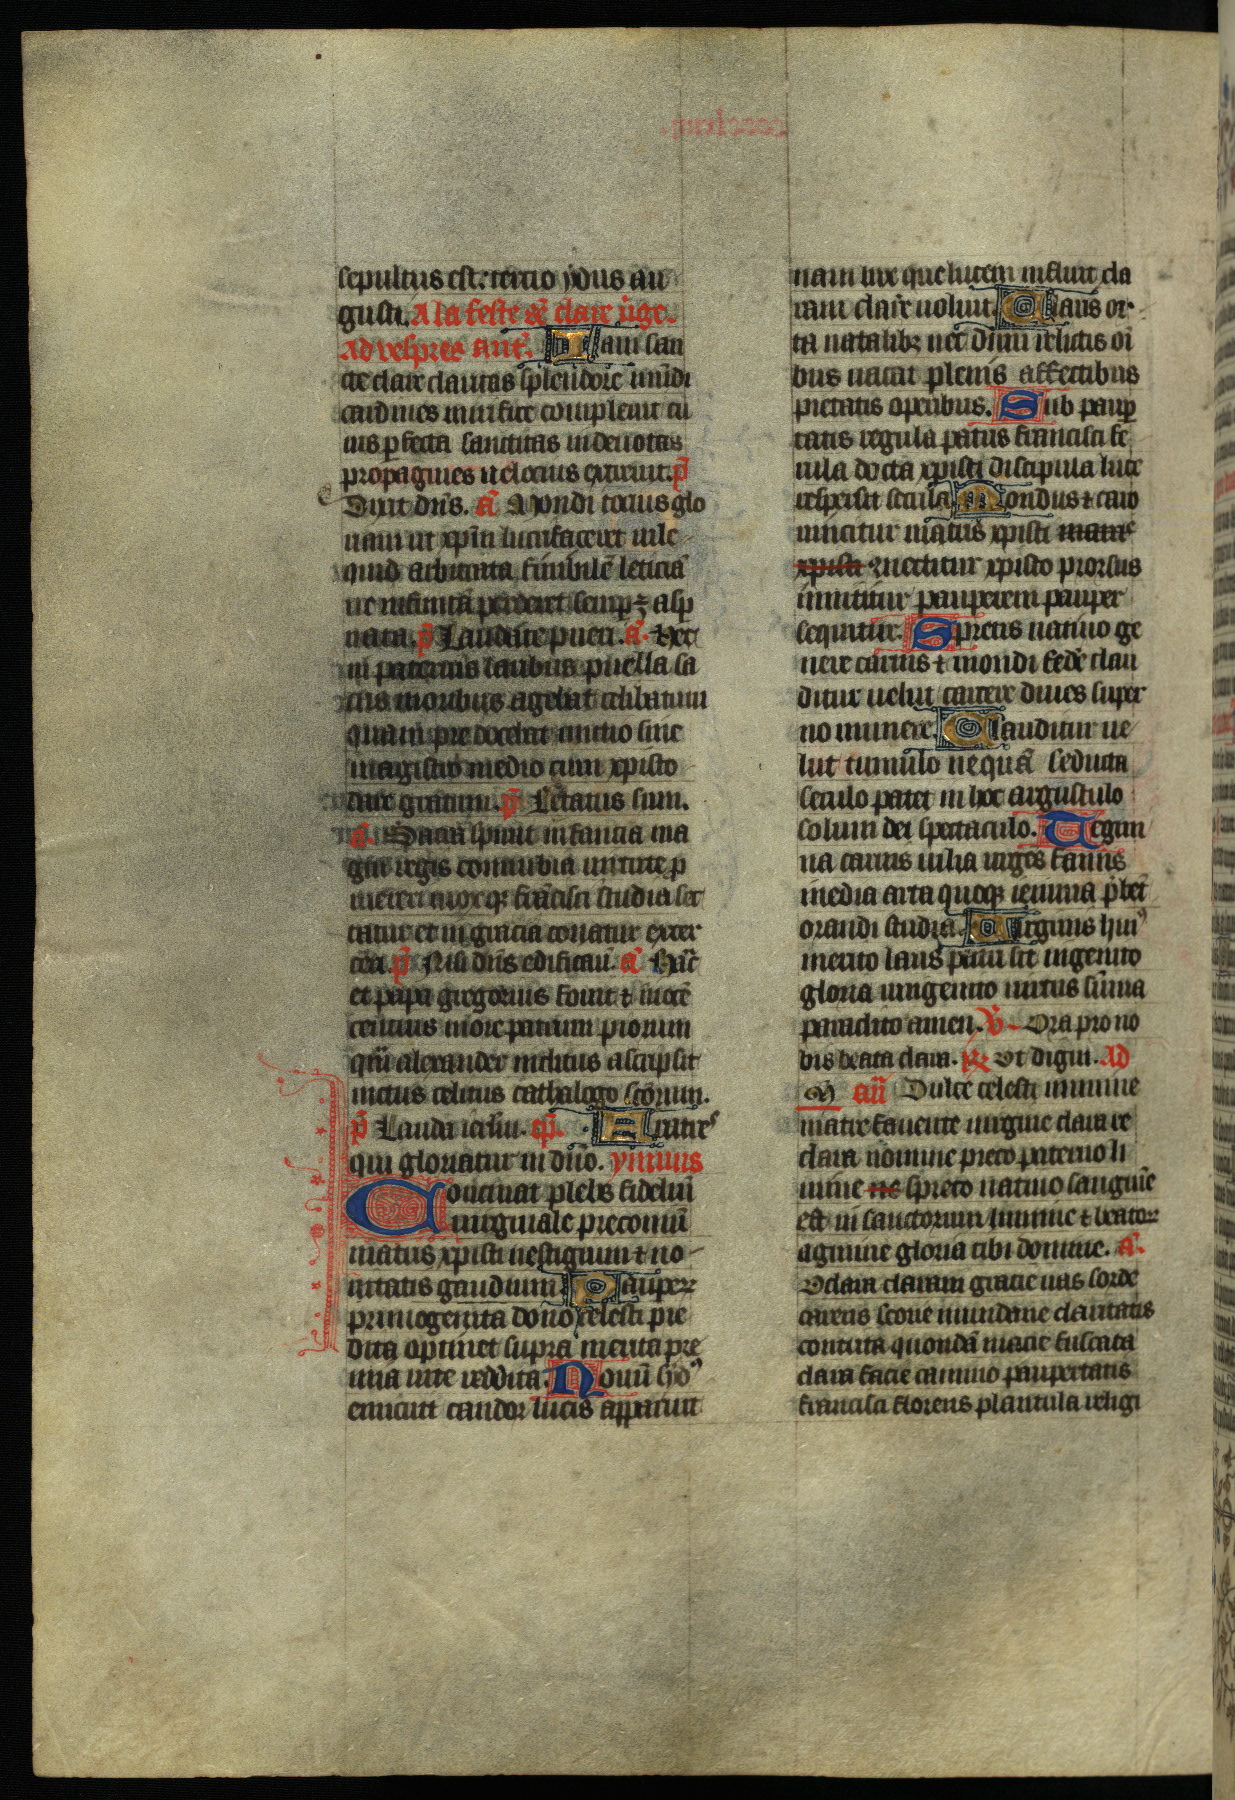 sepultus est: tercio ydus au
gusti. A la feste sc̄e clare v̄ge.
Ad vespres ant̄. Iam san
cte clare claritas splendore mundi
cardines mirifice compleuit cu
ius ꝑfecta sanctitas in deuotas
propagines uelocius exciuit. p̄
Dixit dn̄s. a᷃ Mondi tocius glo
riam ut xp̄m lucrifaceret uile
quid arbitrata
ne infinita perderet semp
nata. p̄ Laudate pueri. a᷃. Hec
in paternis laribus puella sa
cris moribus agebat celibatum
quam pre docebat unctio sine
magistro medio cum xpisto
dare gratum. p̄ Letatus sum.
a᷃. Sacra spirat infantia ma
gni regis connubia uirtute p
meteri moxqꝫ frācisci studia sec
tatur et in gracia conatur exter
cea. p̄ Nisi dn̄s edificau᷃. a᷃ Hāc
et papa gregorius fouit ⁊ inocē
centius more patrum piorum
quā alexander inclitus ascripsit
inctus celitus cathalogo sc̄orum.
p̄ Lauda ierl̄m. cap̄. Fratres
qui gloriatur in dn̄o. ymnus
Concinat plebs fidelium
uirginale preconiū
matris xpisti uestigium ⁊ no
uitatis gaudium. Pauperꝝ
primogenita dono celesti pre
dita optinet supra merita pre
mia uite reddita. Nouū ho
emicuit candor lucis apparuit
nam lux que lucem influit cla
ram clare uoluit. Claris or
ta natalibꝫ nec dum relictis oi
bus uacat plenis affectibus
pietatis operibus. Sub paup
tatis regula patris francisci fe
rula docta xpisti discipula luce
respersit secula. Mondus ⁊ caro
uincitur matris xpisti matris
xpisti ⁊ nectitur xpisto prorsus
innititur pauperem pauper
sequitur. Spretis natiuo ge
nere carnis ⁊ mondi fede clau
ditur uelut carcere diues super
no munere. Clauditur ue
lut tumulo nequā seducta
seculo patet in hoc argustulo
solum dei spectaculo. Tegim
na carnis uilia urges famis
media arta quoqꝫ ieiunia p̄bet
orandi studia. Virginis huiꝰ
merito laus patri sit ingenito
gloria unigenito uirtus sūma
paraclito amen. v̄ Ora pro no
bis beata clara. ꝶ Vt digni. Ad
M an̄ Dulce celesti numine
matre fauente uirgine clara re
clara nomine preco paterno li
mine ne spreto natiuo sanguine
est in sanctorum lumine ⁊ beatorꝝ
agmine gloria tibi domine. a᷃.
O clara claram gracie uas sorde
carens scorie mundane claritatis
contrita quondā macie fuscata
clara facie camino paupertatis
francisci florens plantula religi